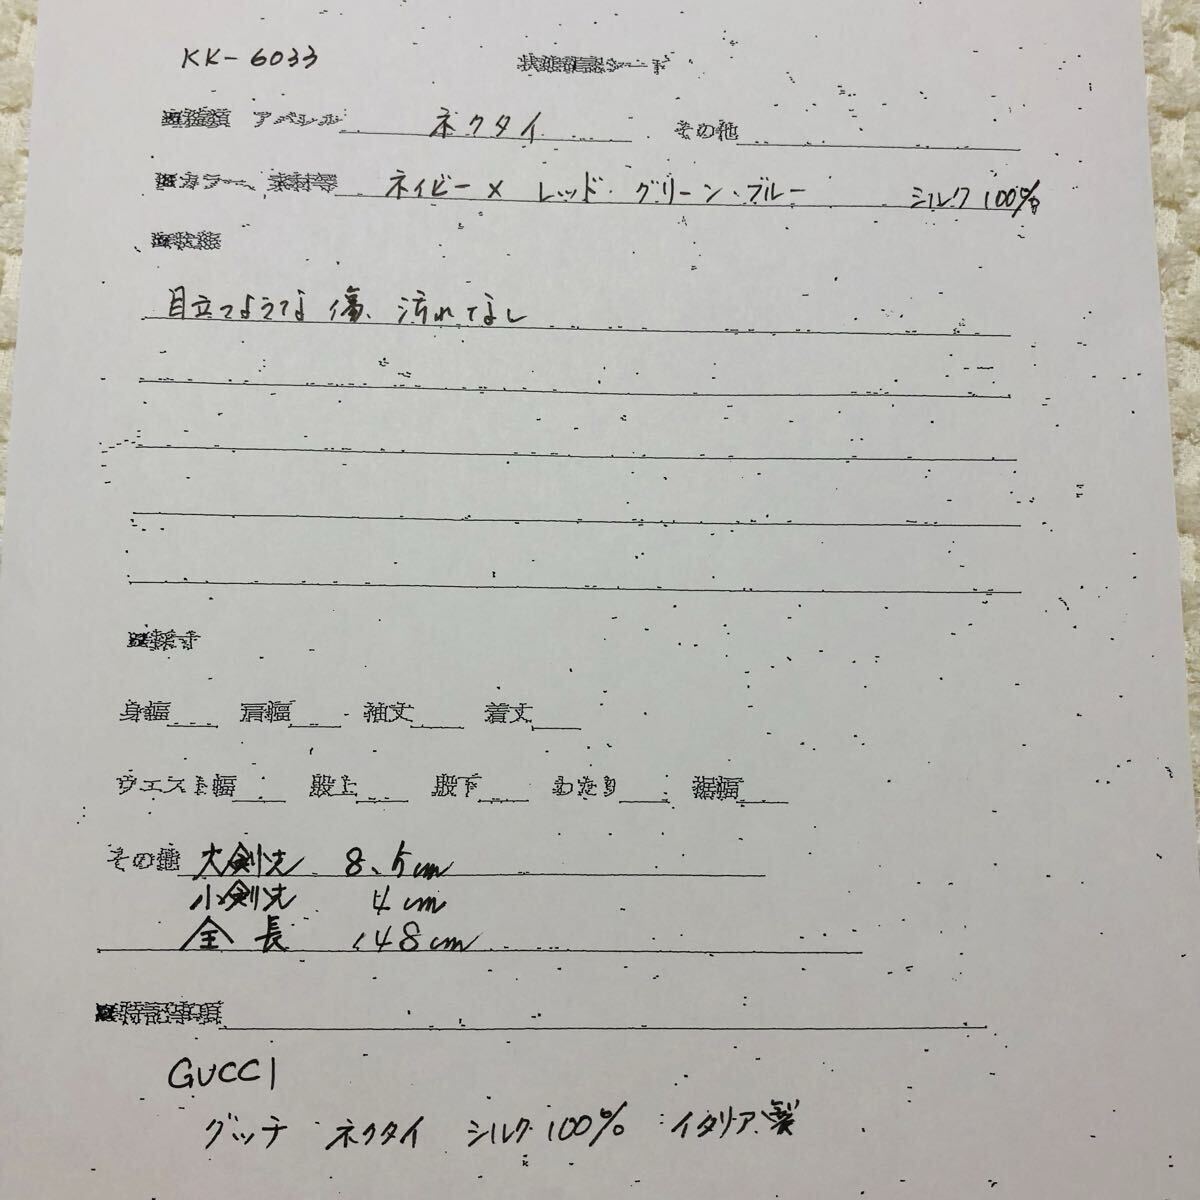 KK-6033
状態確認シード
■種類 アパレル ネクタイ その他
■カラー、素材等 ネイビー× レッド・グリーン・ブルー シルク100%
■状態
目立つような傷、汚れてなし
■採寸
身幅 肩幅 袖丈 着丈
ウエスト幅 股上 股下 わたり 裾幅
その他 大剣先 8.5cm
小剣先 4cm
全長 148cm
■特記事項
GUCCI
グッチ ネクタイ シルク100% イタリア製